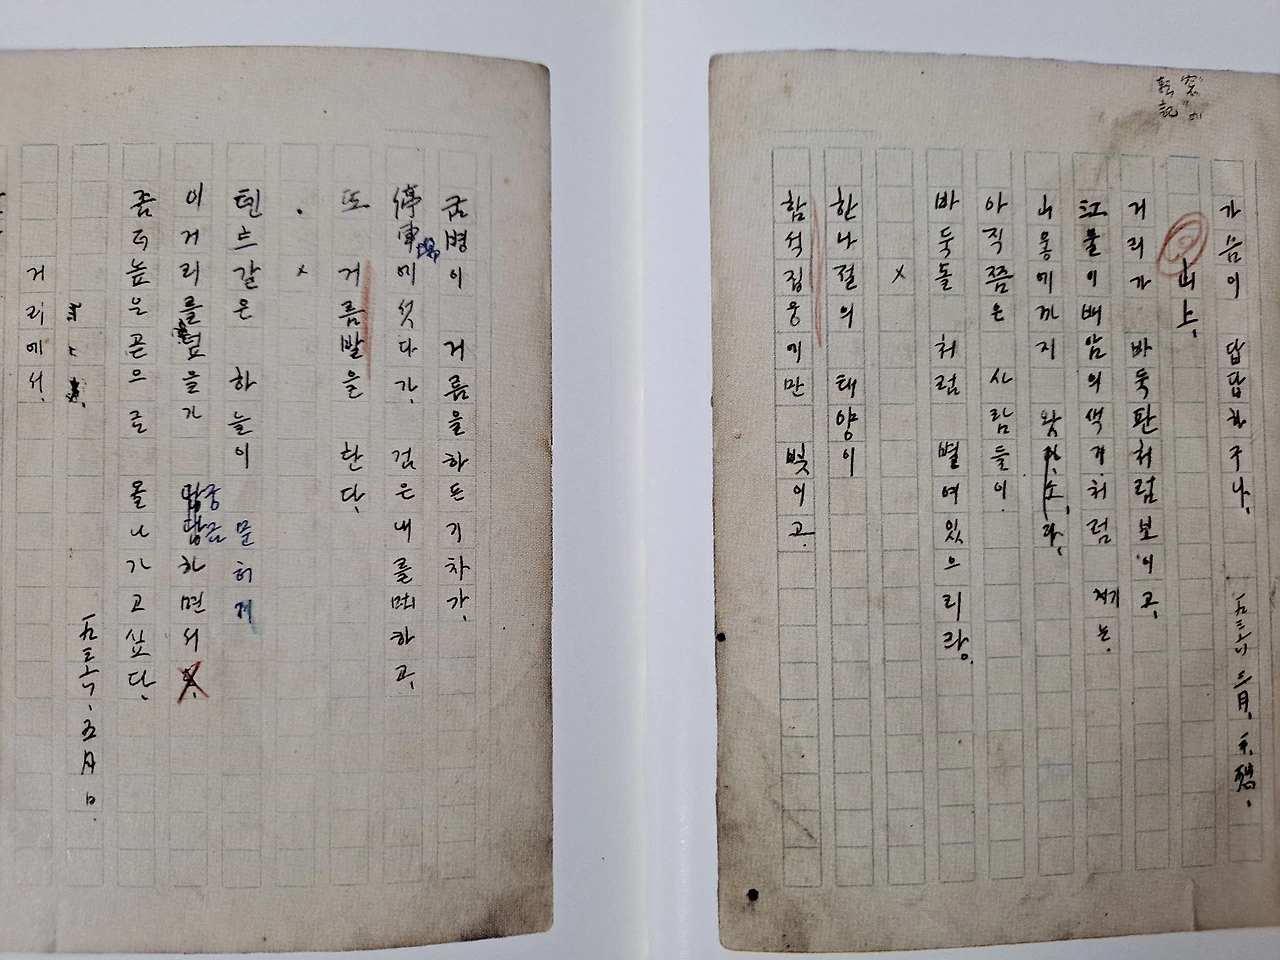 "窓"에
転記
가슴이 답답하구나. 一九三六 三月. 平壤想.
山上、
거리가 바둑판처럼보이고,
江물이배암의색기처럼 기는.
山웋에까지 왓다.
아직쯤은 사람들이.
바둑돌 처럼 별여있으리라.
x
한나절의 태양이
함석집웅에만 빛이고.
굼벙이 거름을하든기차가,
停車場에섯다가, 검은내를吐하고,
또 거름발을 한다,
x
텐트같은 하늘이 문허저
이거리를덮을가 궁금하면서
좀더높은곧으로 올나가고싶다、
一九三六、五月 日.
거리에서.